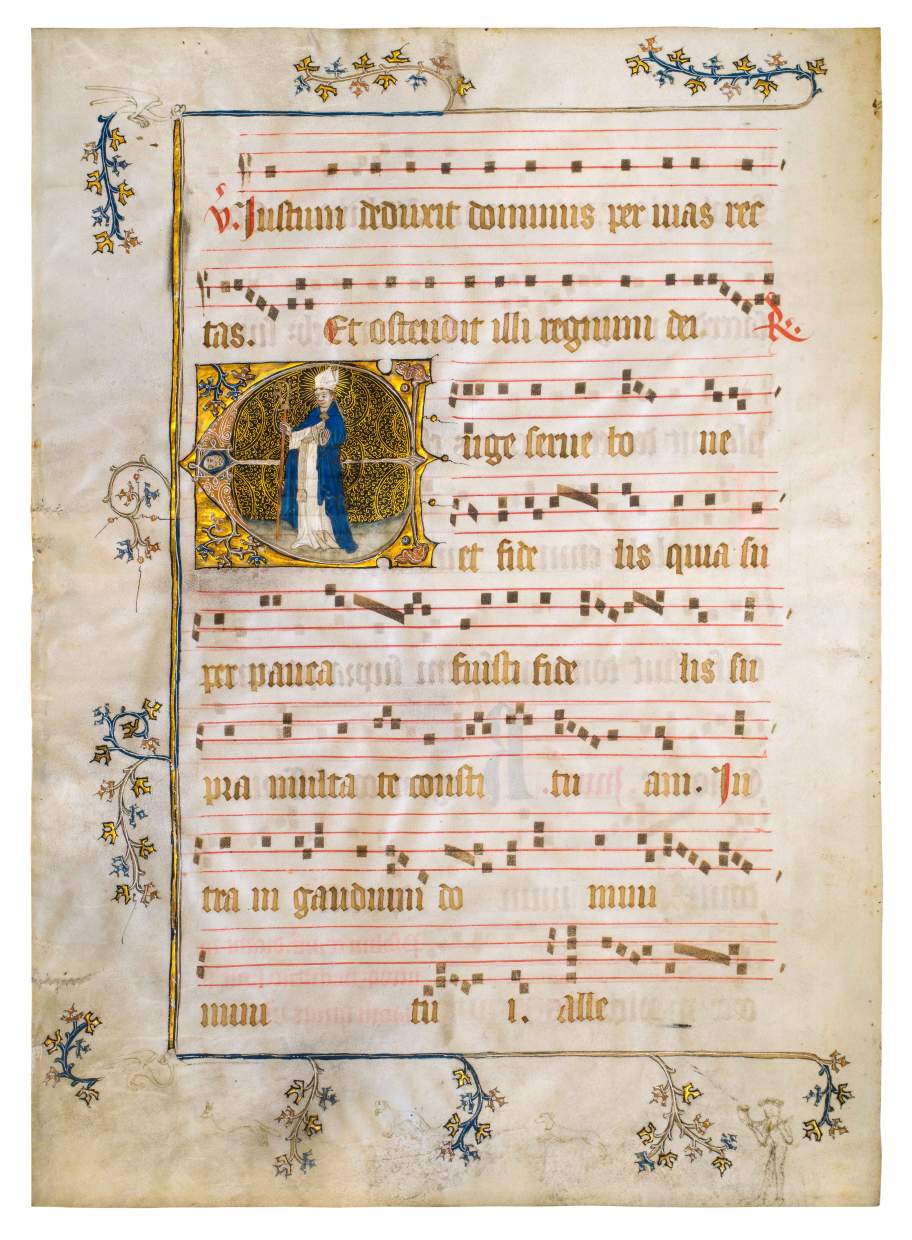 ℣. Justum deduxit dominus per uias rec
tas. Et ostendit illi regnum dei ℟.
Euge serue bo ne
et fide lis quia su
per pauca fuisti fide lis su
pra multa te consti tu am. In
tra in gaudium do mini
mini tu i. alle